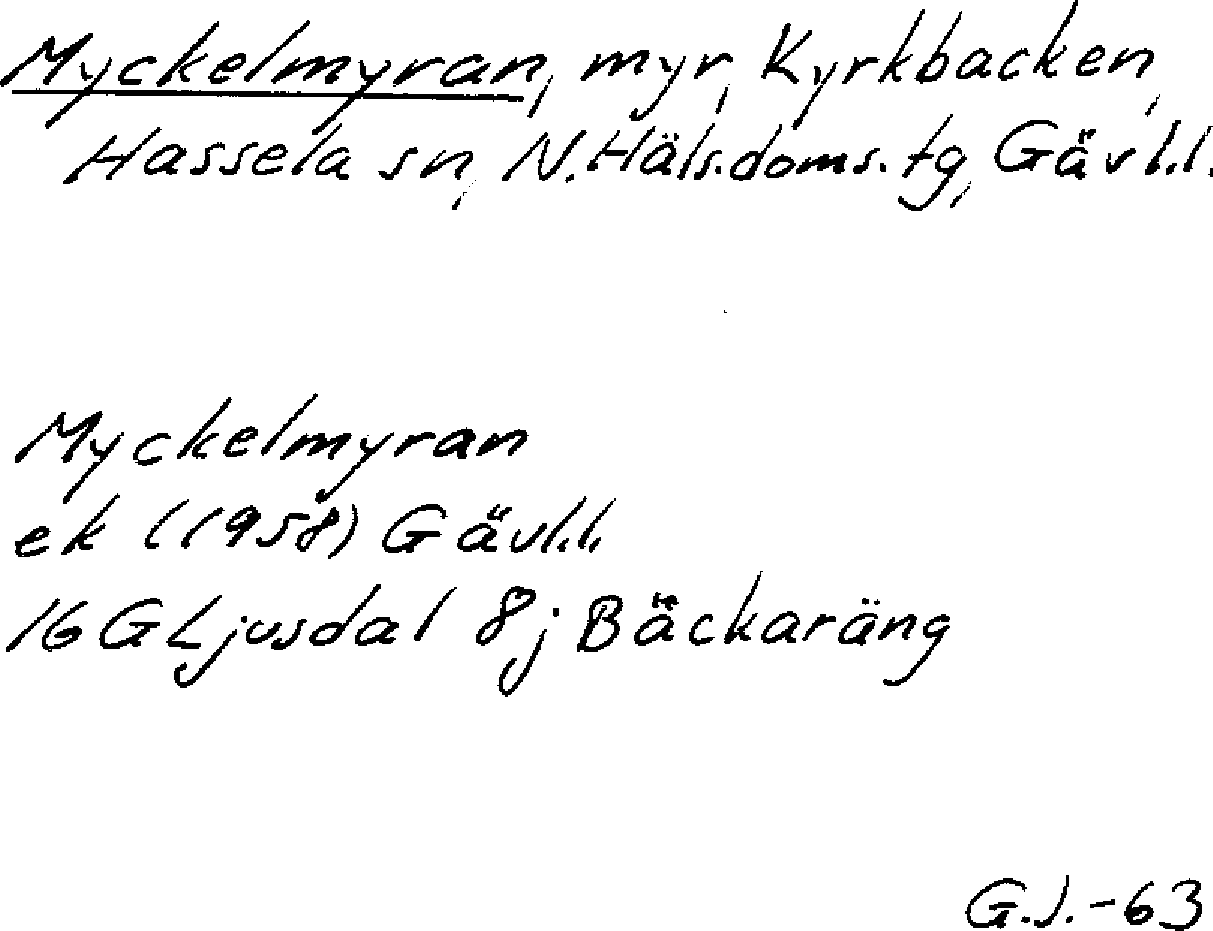 Myckelmyran, myr, Kyrkbacken,
Hassela sn, N. Häls.doms.tg, Gävl.l.
Myckelmyran
ek (1958) Gävl.l.
16 G Ljusdal 8j Bäckaräng
G.J.-63